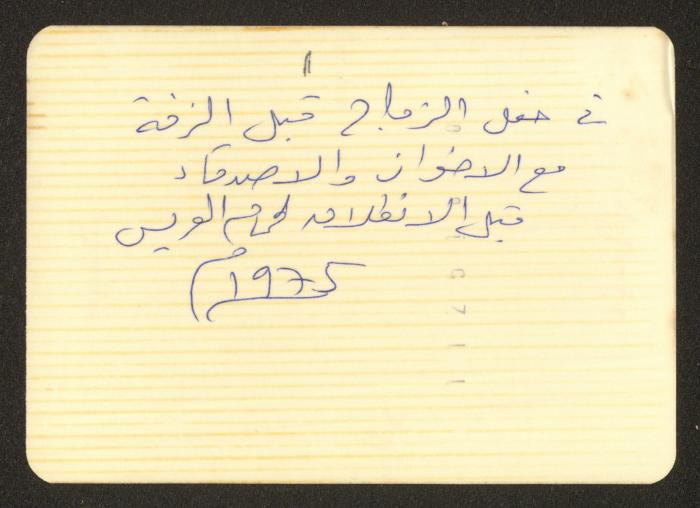 ١
في حفل الزواج قبل الزفة
مع الاخوان والاصدقاء
قبل الانطلاق لحمام العريس
1975م